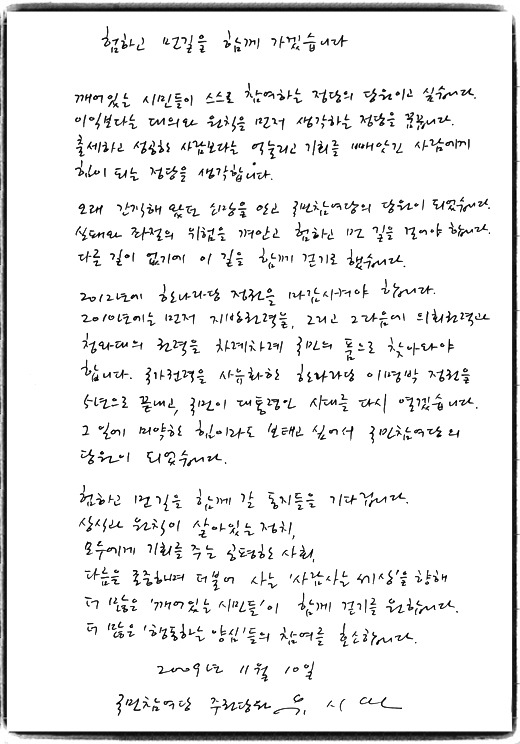 험하고 먼길을 함께 가겠습니다
깨어있는 시민들이 스스로 참여하는 정당의 당원이고 싶습니다.
이익보다는 대의와 원칙을 먼저 생각하는 정당을 꿈꿉니다.
출세하고 성공한 사람보다는 억눌리고 기회를 빼앗긴 사람에게
힘이 되는 정당을 생각합니다.
오래 간직해 왔던 희망을 안고 국민참여당의 당원이 되었습니다.
실패와 좌절의 위험을 껴안고 험하고 먼 길을 걸어야 합니다.
다른 길이 없기에 이 길을 함께 걷기로 했습니다.
2012년에 한나라당 정권을 마감시켜야 합니다.
2010년에는 먼저 지방권력을, 그리고 그다음에 의회권력과
청와대의 권력을 차례차례 국민의 품으로 찾아와야
합니다. 국가권력을 사유화한 한나라당 이명박 정권을
5년으로 끝내고, 국민이 대통령인 시대를 다시 열겠습니다.
그 일에 미약한 힘이라도 보태고 싶어서 국민참여당의
당원이 되었습니다.
험하고 먼 길을 함께 갈 동지들을 기다립니다.
상식과 원칙이 살아있는 정치,
모두에게 기회를 주는 공평한 사회,
다름을 존중하며 더불어 사는 '사람사는 세상'을 향해
더 많은 '깨어있는 시민들'이 함께 걷기를 원합니다.
더 많은 '행동하는 양심'들의 참여를 호소합니다.
2009년 11월 10일
국민참여당 주권당원 유 시 민